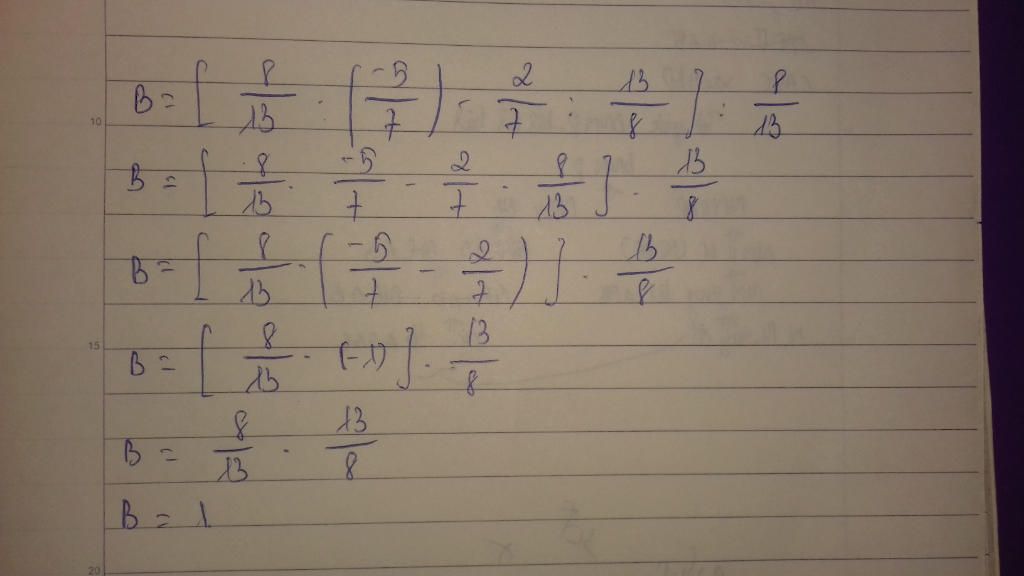 B = [ 8/13 · (-5/7) - 2/7 : 13/8 ] : 8/13
B = [ 8/13 · -5/7 - 2/7 · 8/13 ] · 13/8
B = [ 8/13 · ( -5/7 - 2/7 ) ] · 13/8
B = [ 8/13 · (-1) ] · 13/8
B = 8/13 · 13/8
B = 1
10
15
20